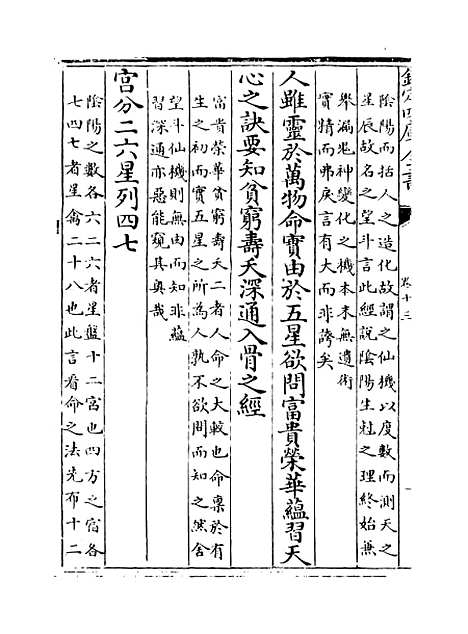 欽定四庫全書
卷十三
陰陽而括人之造化故謂之仙機以度數而測天之
星辰故名之望斗言此經說陰陽生尅之理終始兼
舉漏鬼神變化之機本末無遺術
實精而弗戾言有大而非誇矣
人雖靈於萬物命實由於五星欲問富貴榮華蘊習天
心之訣要知貧窮壽夭深通入骨之經
富貴榮華貧窮壽夭二者人命之大較也命稟於有
生之初而實五星之所為人孰不欲問而知之然舍
望斗仙機則無由而知非蘊
習深通亦惡能窺其奥哉
宫分二六星列四七
陰陽之數各六二六者星盤十二宫也四方之宿各
七四七者星禽二十八也此言看命之法先布十二